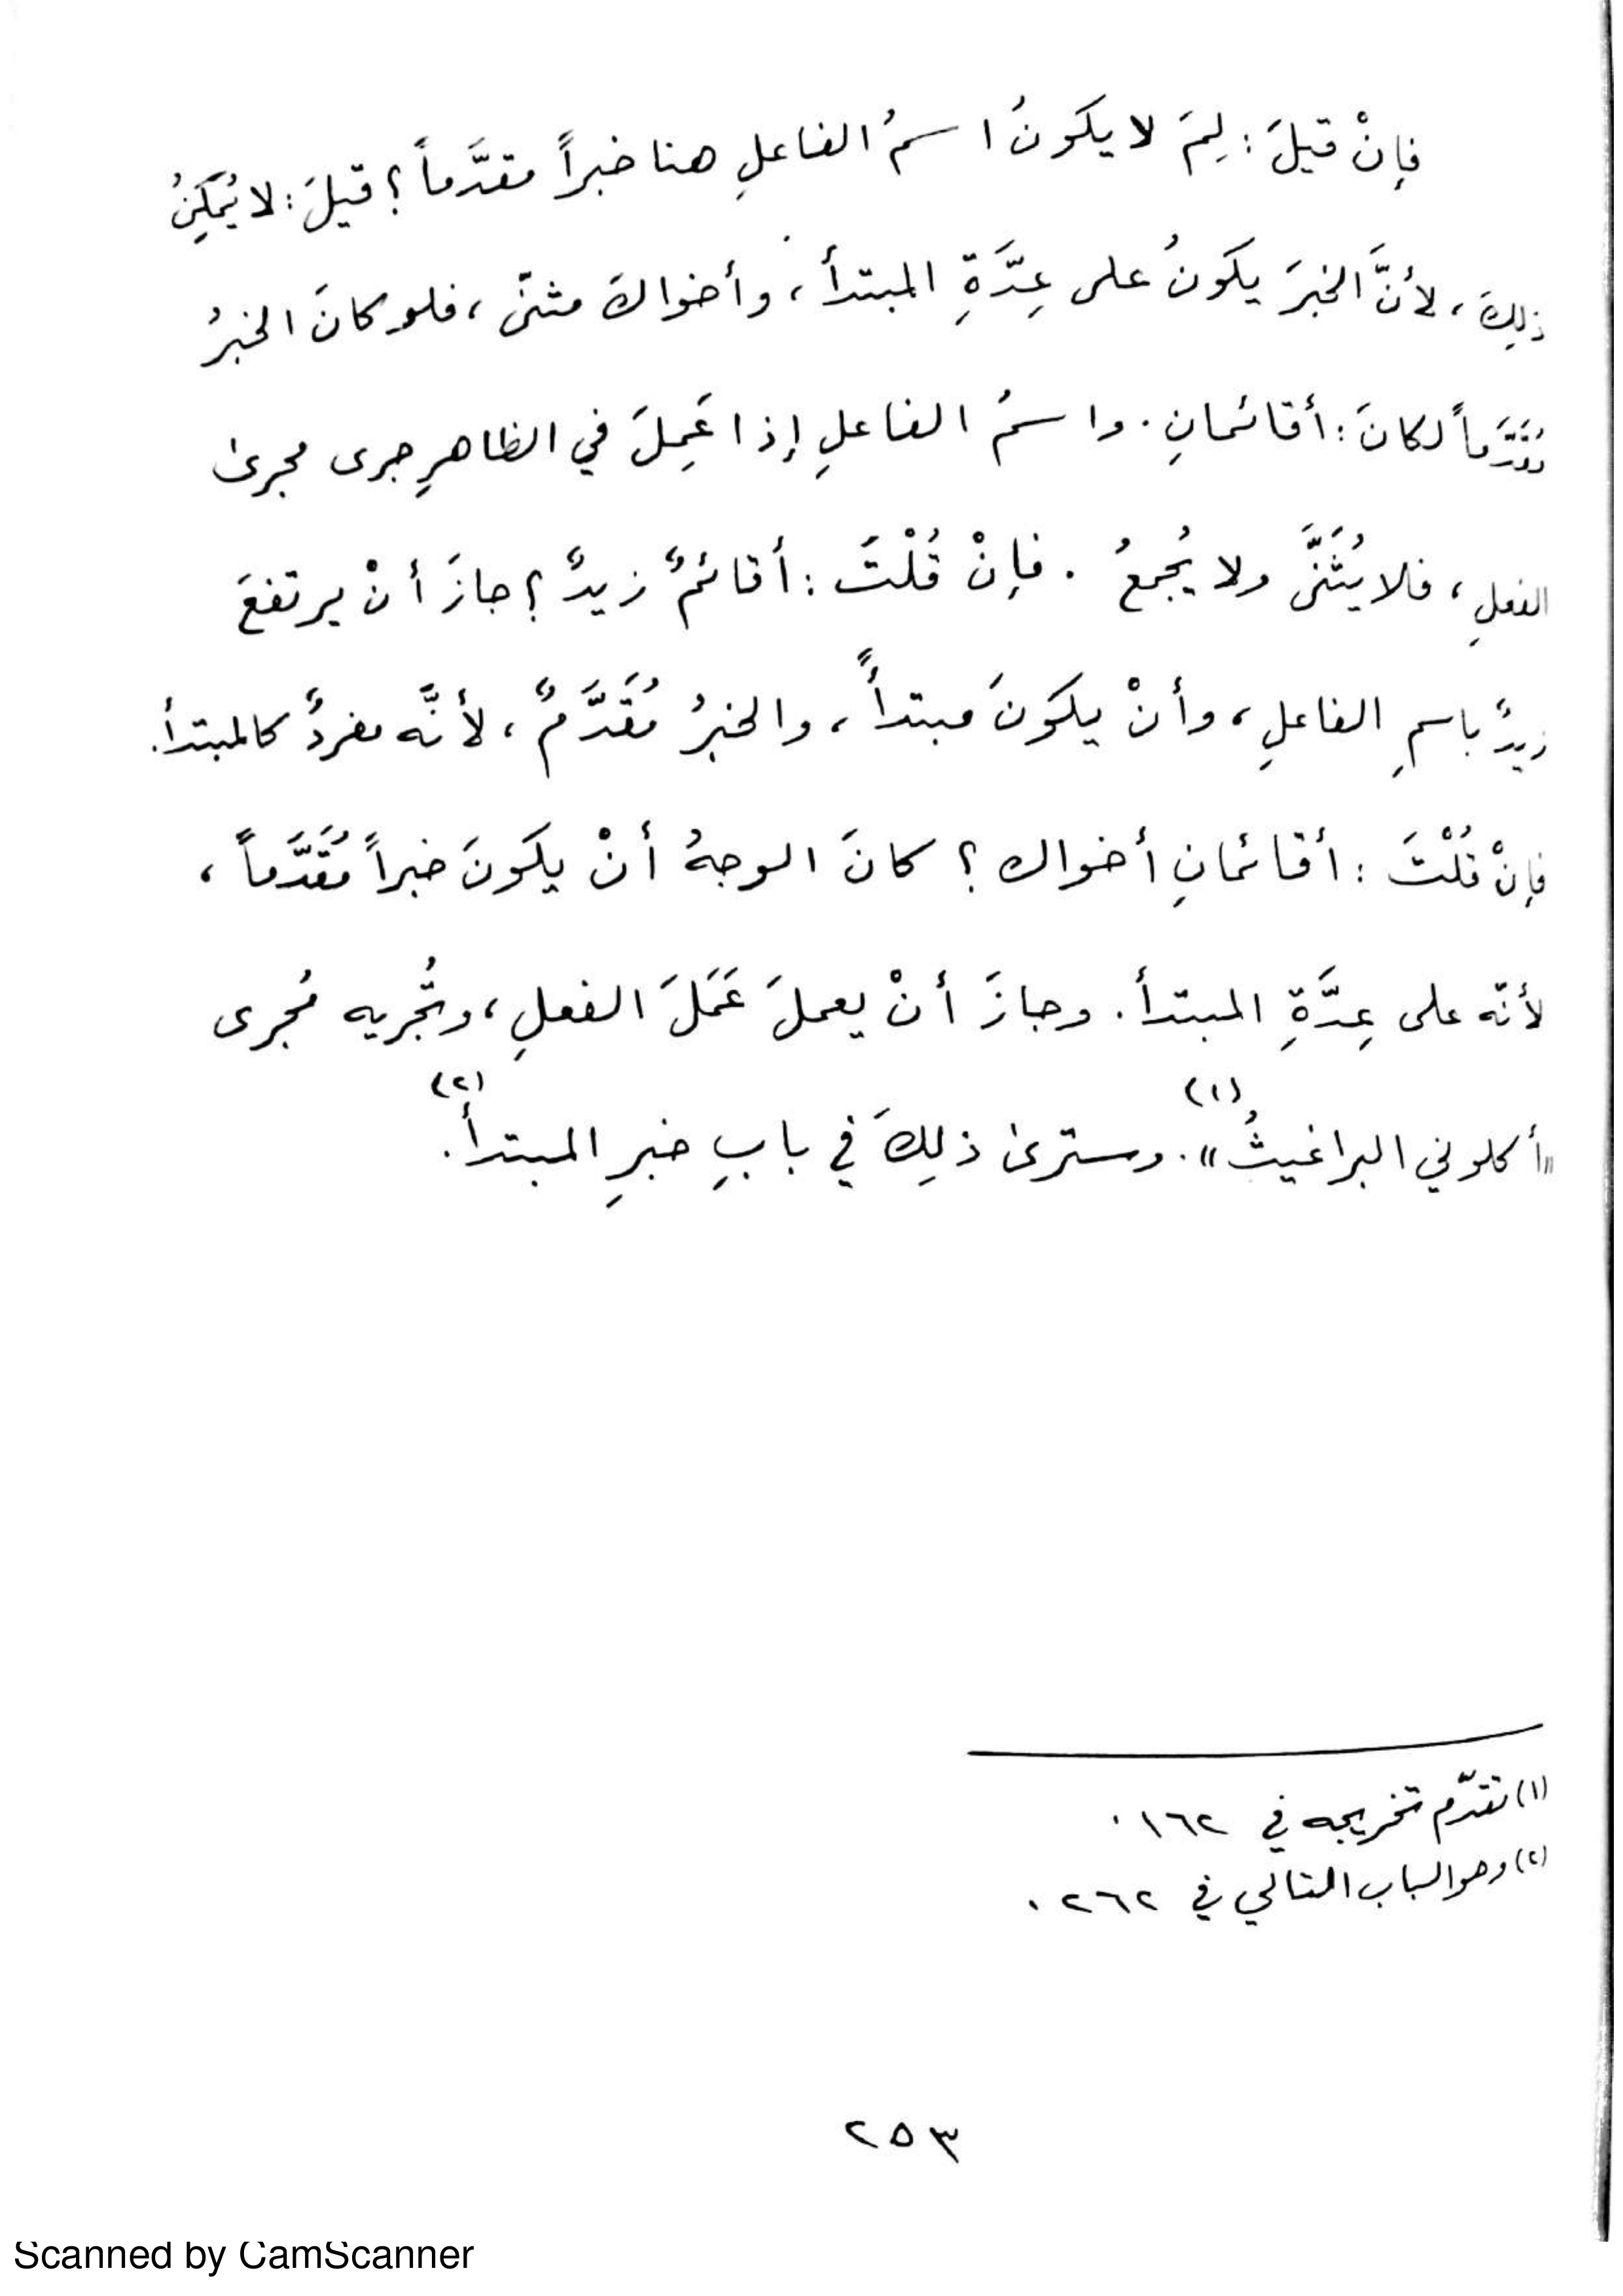 فإنْ قيلَ: لِمَ لا يكونُ اسمُ الفاعلِ هنا خبراً مقدَّماً؟ قيلَ: لا يُمكِنُ
ذلِكَ، لأنَّ الخبرَ يكونُ على عِدَّةِ المبتدأ، وأخواكَ مثنّى، فلو كانَ الخبرُ
مُقَدَّماً لكانَ: أقائمانِ. واسمُ الفاعلِ إذا عَمِلَ في الظاهرِ جرى مجرى
الفعلِ، فلا يُثَنَّى ولا يُجمعُ. فإنْ قُلْتَ: أقائمٌ زيدٌ؟ جازَ أنْ يرتفعَ
زيدٌ باسمِ الفاعلِ، وأنْ يكونَ مبتدأً، والخبرُ مُقَدَّمٌ، لأنَّه مفردٌ كالمبتدأ.
فإنْ قُلْتَ: أقائمانِ أخواك؟ كانَ الوجهُ أنْ يكونَ خبراً مُقَدَّماً،
لأنّه على عِدَّةِ المبتدأ. وجازَ أنْ يعملَ عَمَلَ الفعلِ، وتُجريه مُجرى
«أكلوني البراغيثُ»(١). وسترى ذلِكَ في بابِ خبرِ المبتدأ(٢).
(١) تقدّم تخريجه في ١٦٢.
(٢) وهو الباب التالي في ٢٦٢.
٢٥٣
Scanned by CamScanner